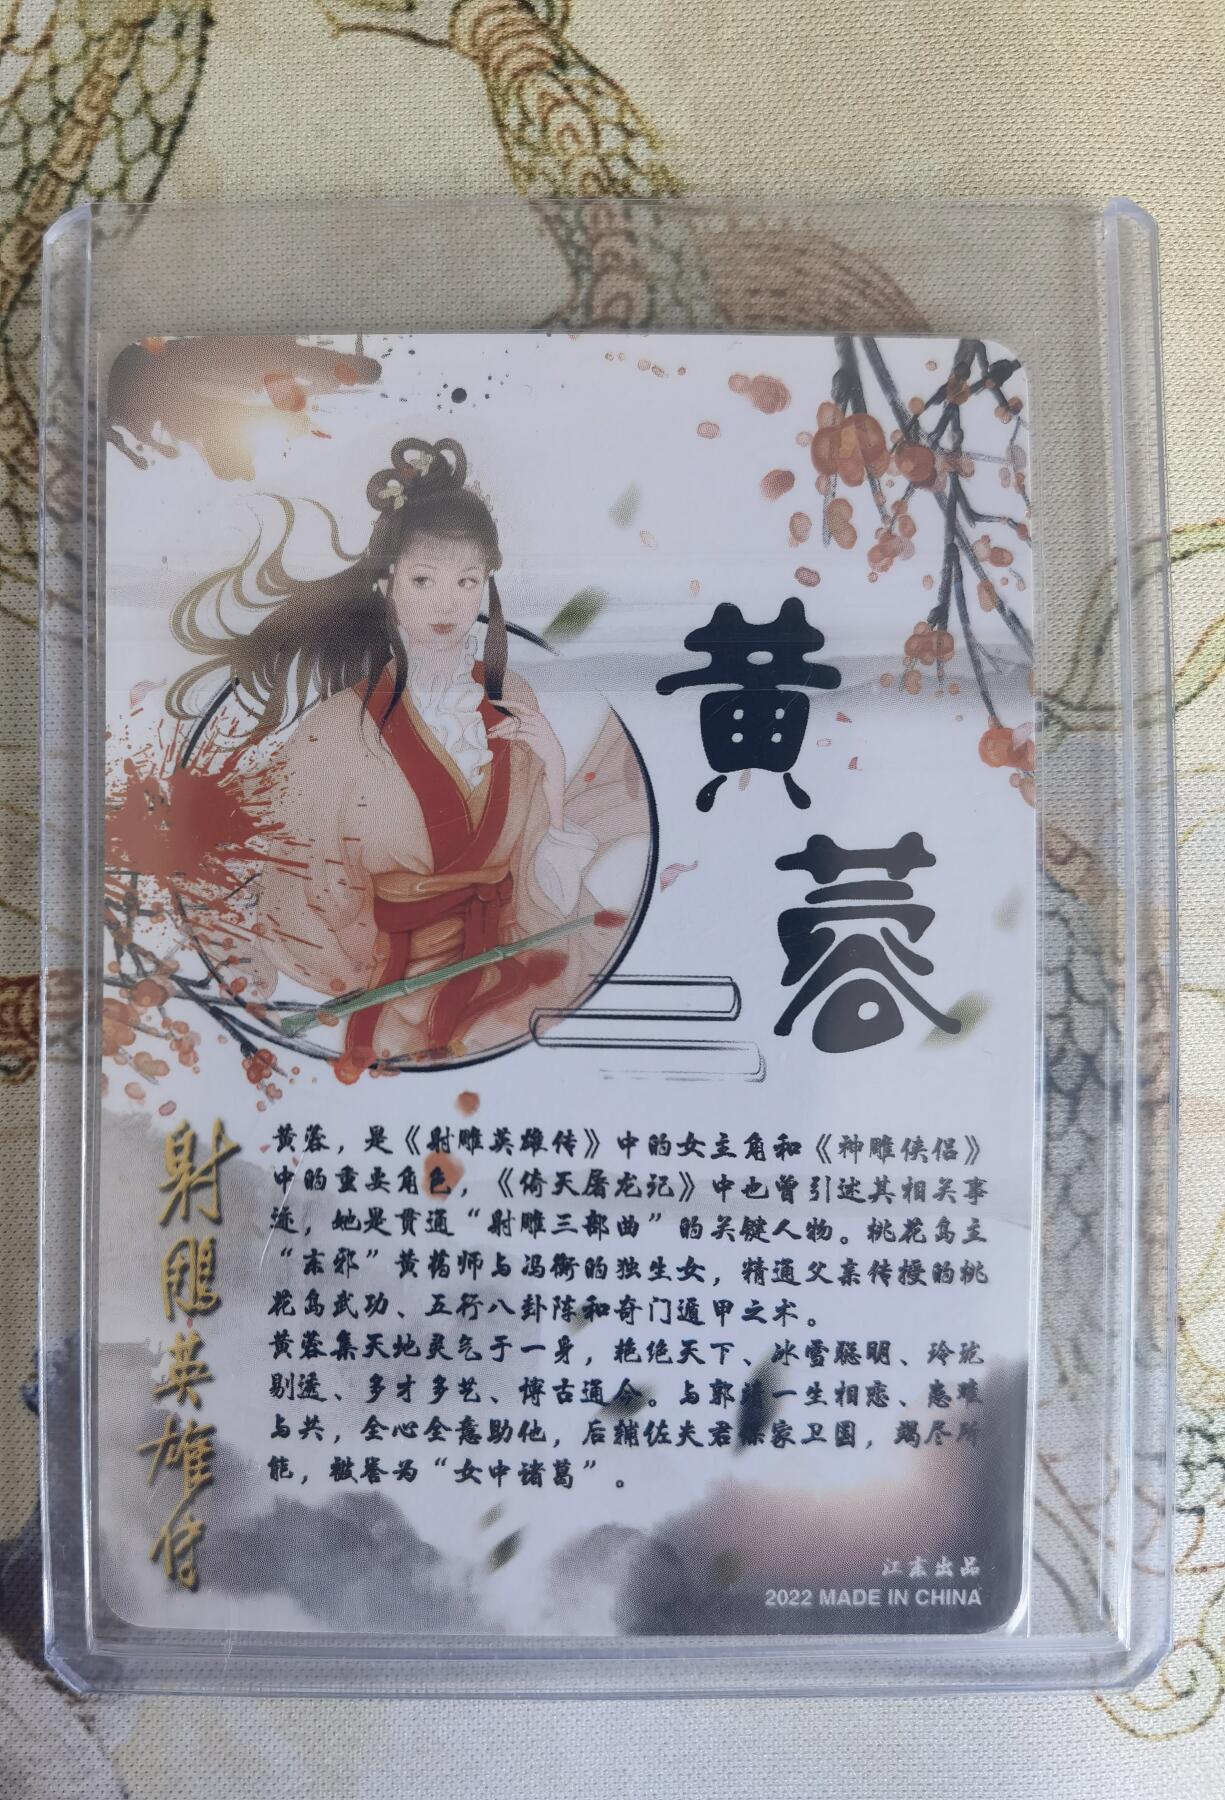 黄
蓉
射雕英雄传
黄蓉，是《射雕英雄传》中的女主角和《神雕侠侣》
中的重要角色，《倚天屠龙记》中也曾引述其相关事
迹，她是贯通“射雕三部曲”的关键人物。桃花岛主
“东邪”黄药师与冯衡的独生女，精通父亲传授的桃
花岛武功、五行八卦阵和奇门遁甲之术。
黄蓉集天地灵气于一身，艳绝天下、冰雪聪明、玲珑
剔透、多才多艺、博古通今。与郭靖一生相恋、患难
与共，全心全意助他，后辅佐夫君保家卫国，竭尽所
能，被誉为“女中诸葛”。
江东出品
2022 MADE IN CHINA